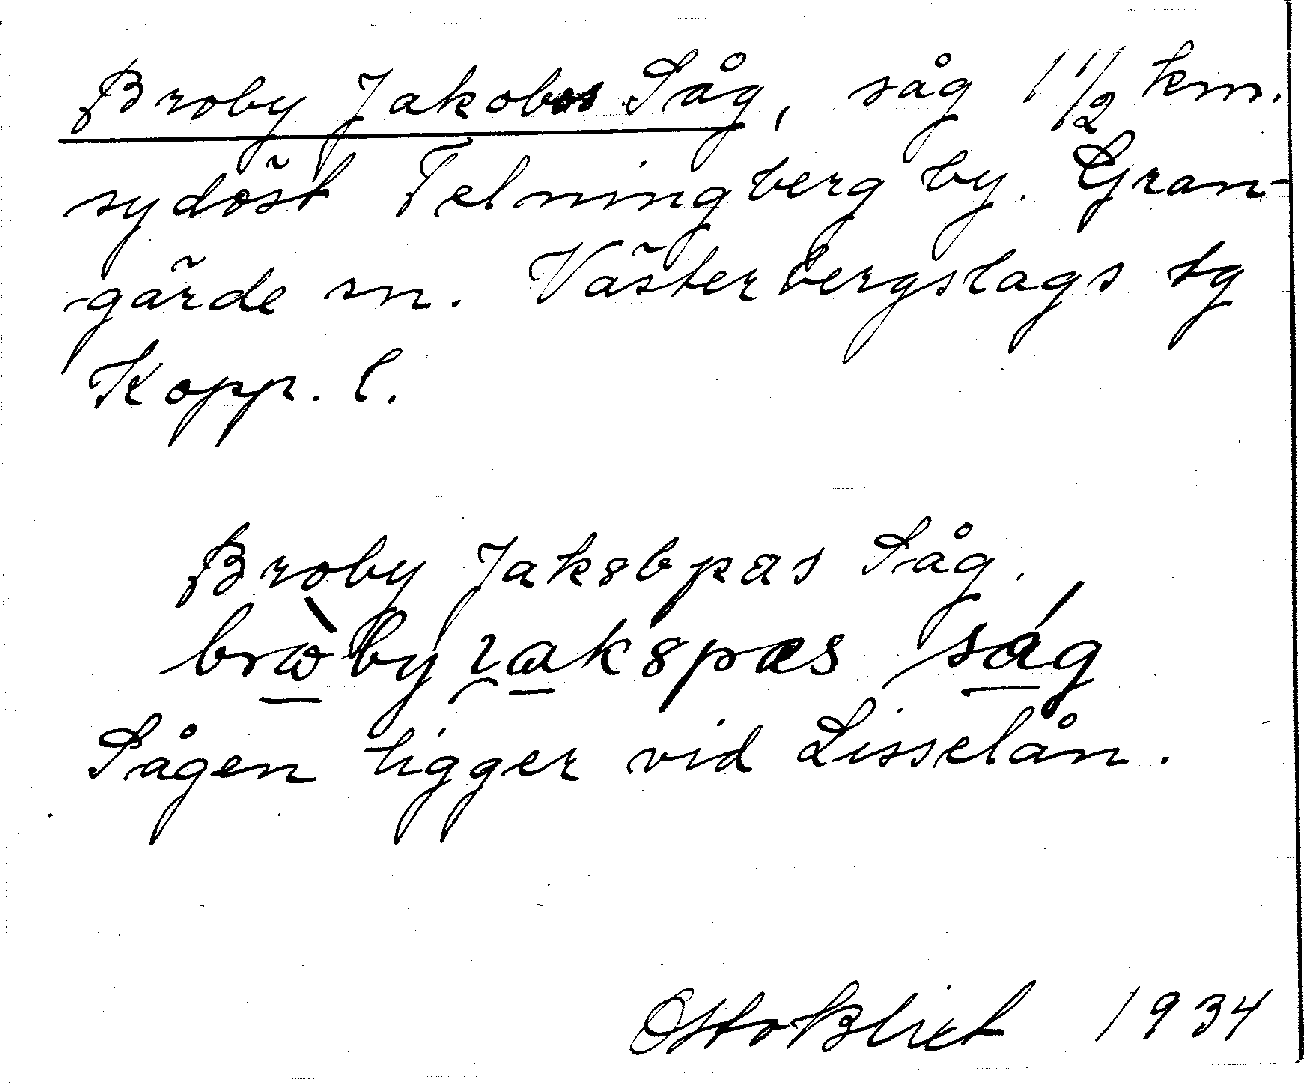 Broby Jakobs Såg, såg 1 1/2 km.
sydöst Telningberg by. Gran-
gärde sn. Västerbergslags tg
Kopp. l.
Broby Jak8bpæs Såg.
Sågen ligger vid Lisselån.
Otto Blixt 1934